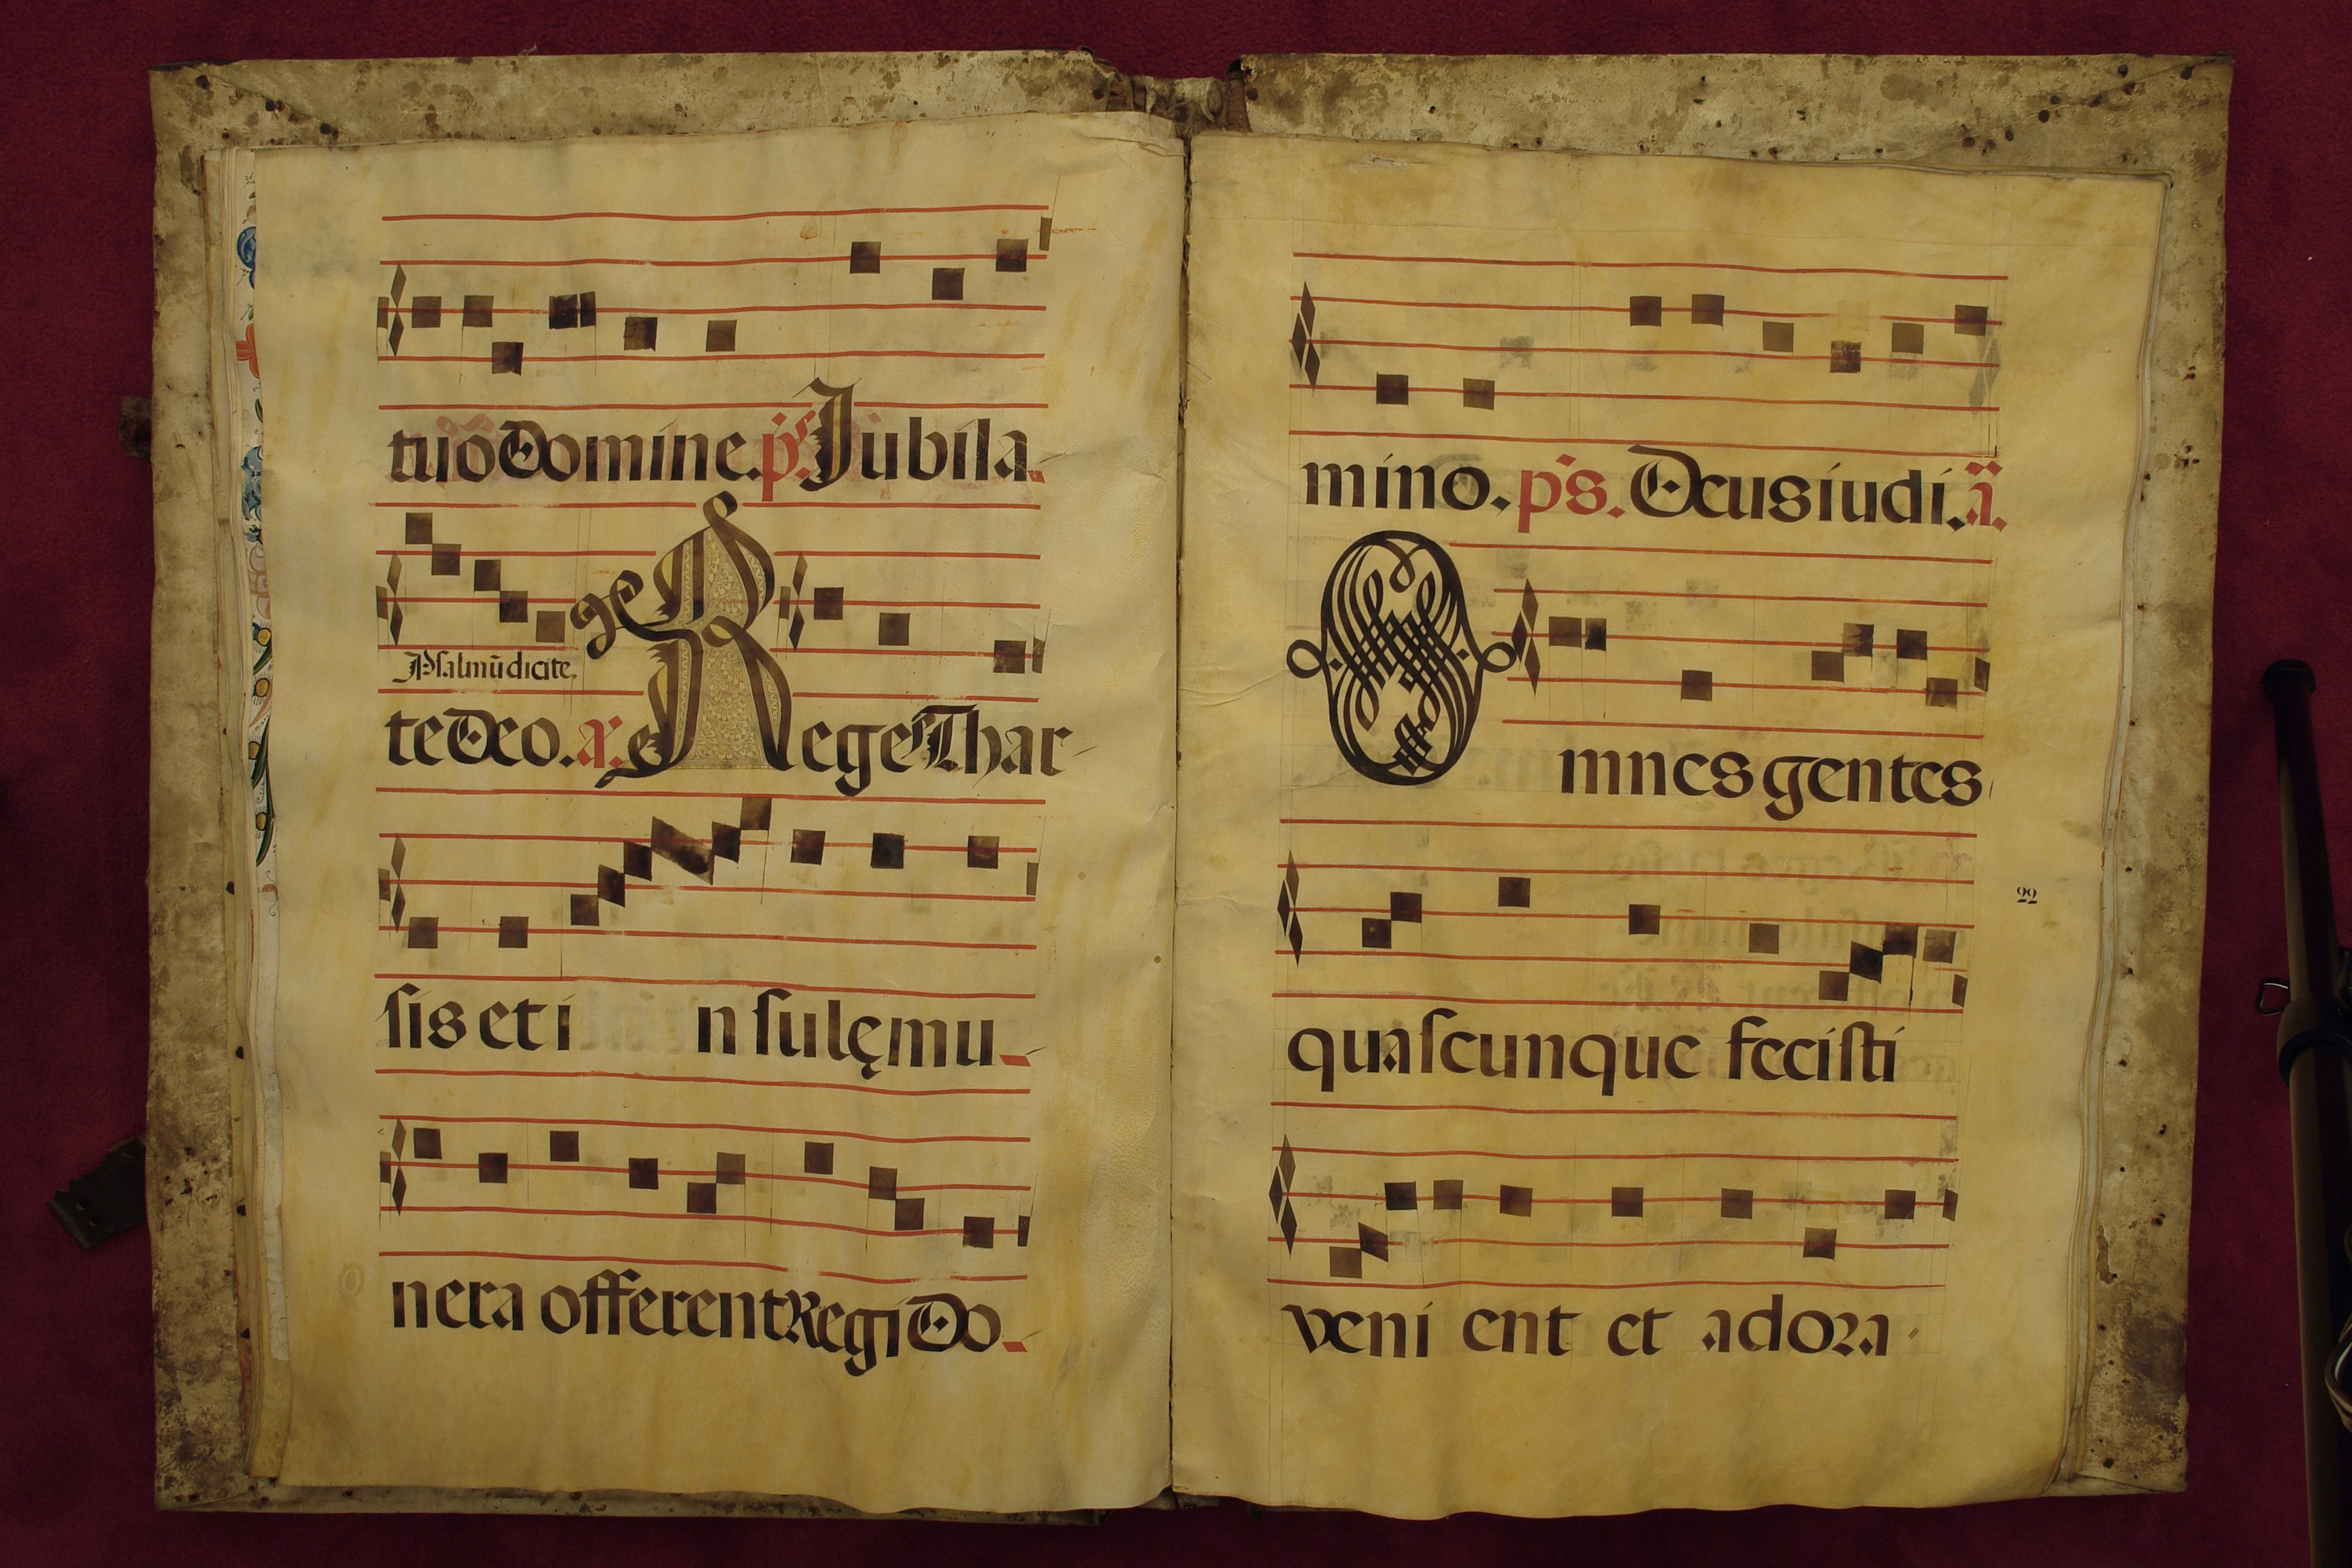 tuo Domine. ps. Jubila
Psalmũ dicite.
te Deo. a. Rege Thar
sis et i n sulęmu
nera offerent Regi Do
mino. ps. Deus iudi. a.
Omnes gentes
quascunque fecisti
22
veni ent et adora